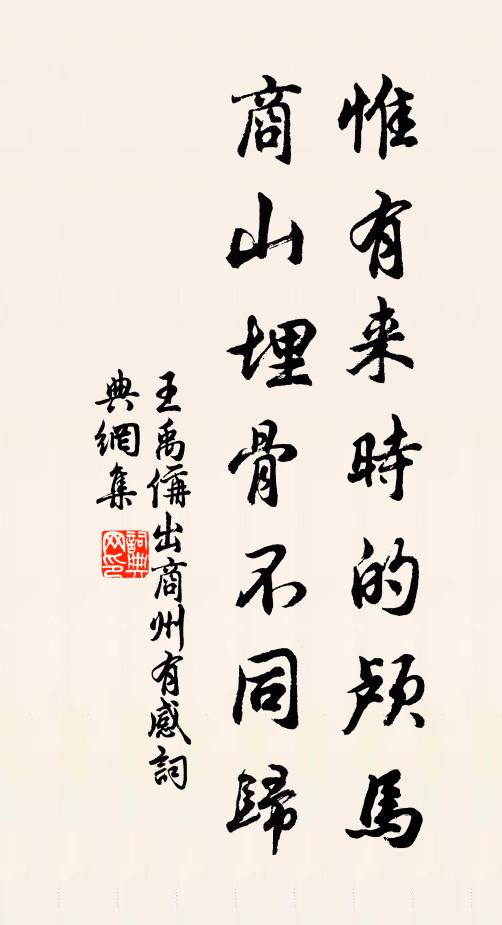 惟有来時的颅馬
商山埋骨不同歸
王禹偁出商州有感詞
典網集
詞典
网印